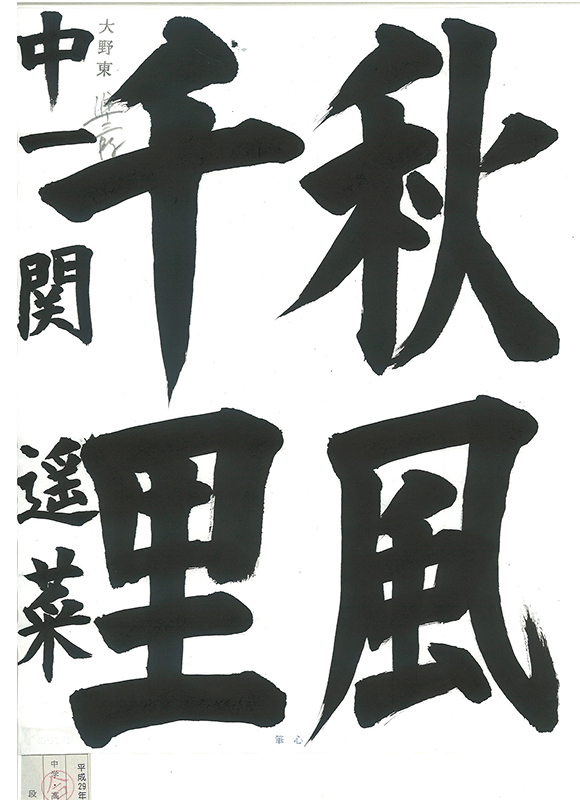 秋風
千里
大野東
中一 関 遥菜
心筆
平成29年
中学・高
段